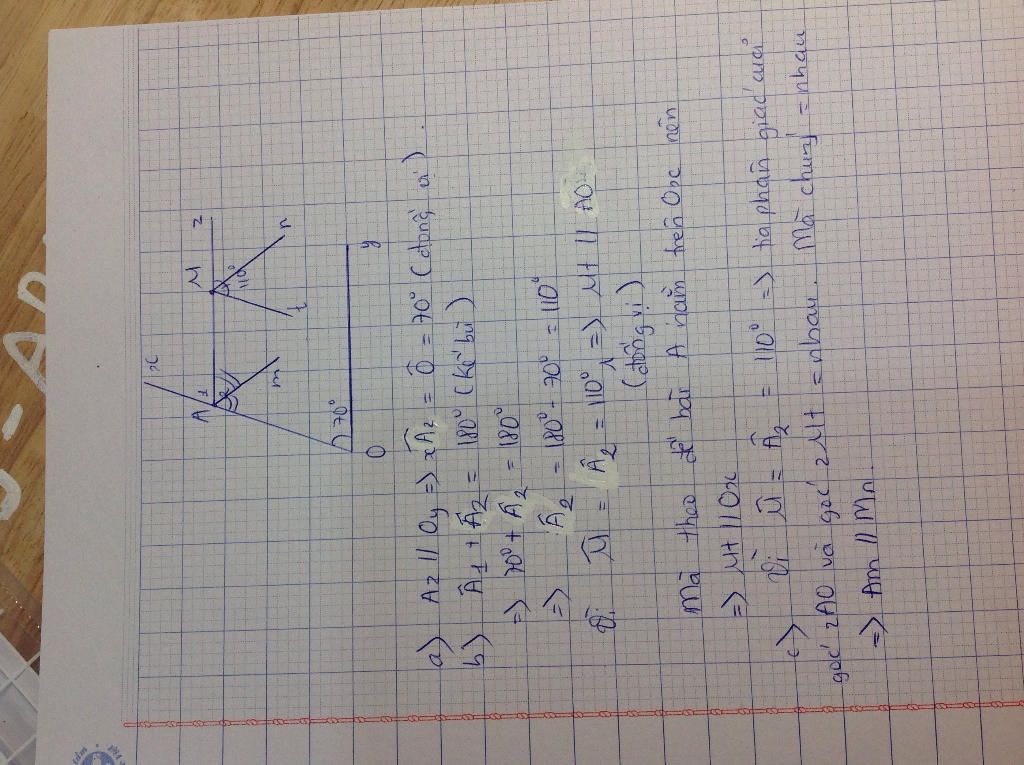 x
A
1
2
M
z
110°
m
t
n
70°
O
y
a) Az // Oy => xÂz = Ô = 70° (đồng vị).
b) Â1 + Â2 = 180° (kề bù)
=> 70° + Â2 = 180°
=> Â2 = 180° - 70° = 110°
Vì M̂ = Â2 = 110° => Mt // AO
(đồng vị)
Mà theo đề bài A nằm trên Ox nên
=> Mt // Ox
c) Vì M̂ = Â2 = 110° => tia phân giác của
góc zAO và góc zMt = nhau. Mà chúng = nhau
=> Am // Mn.